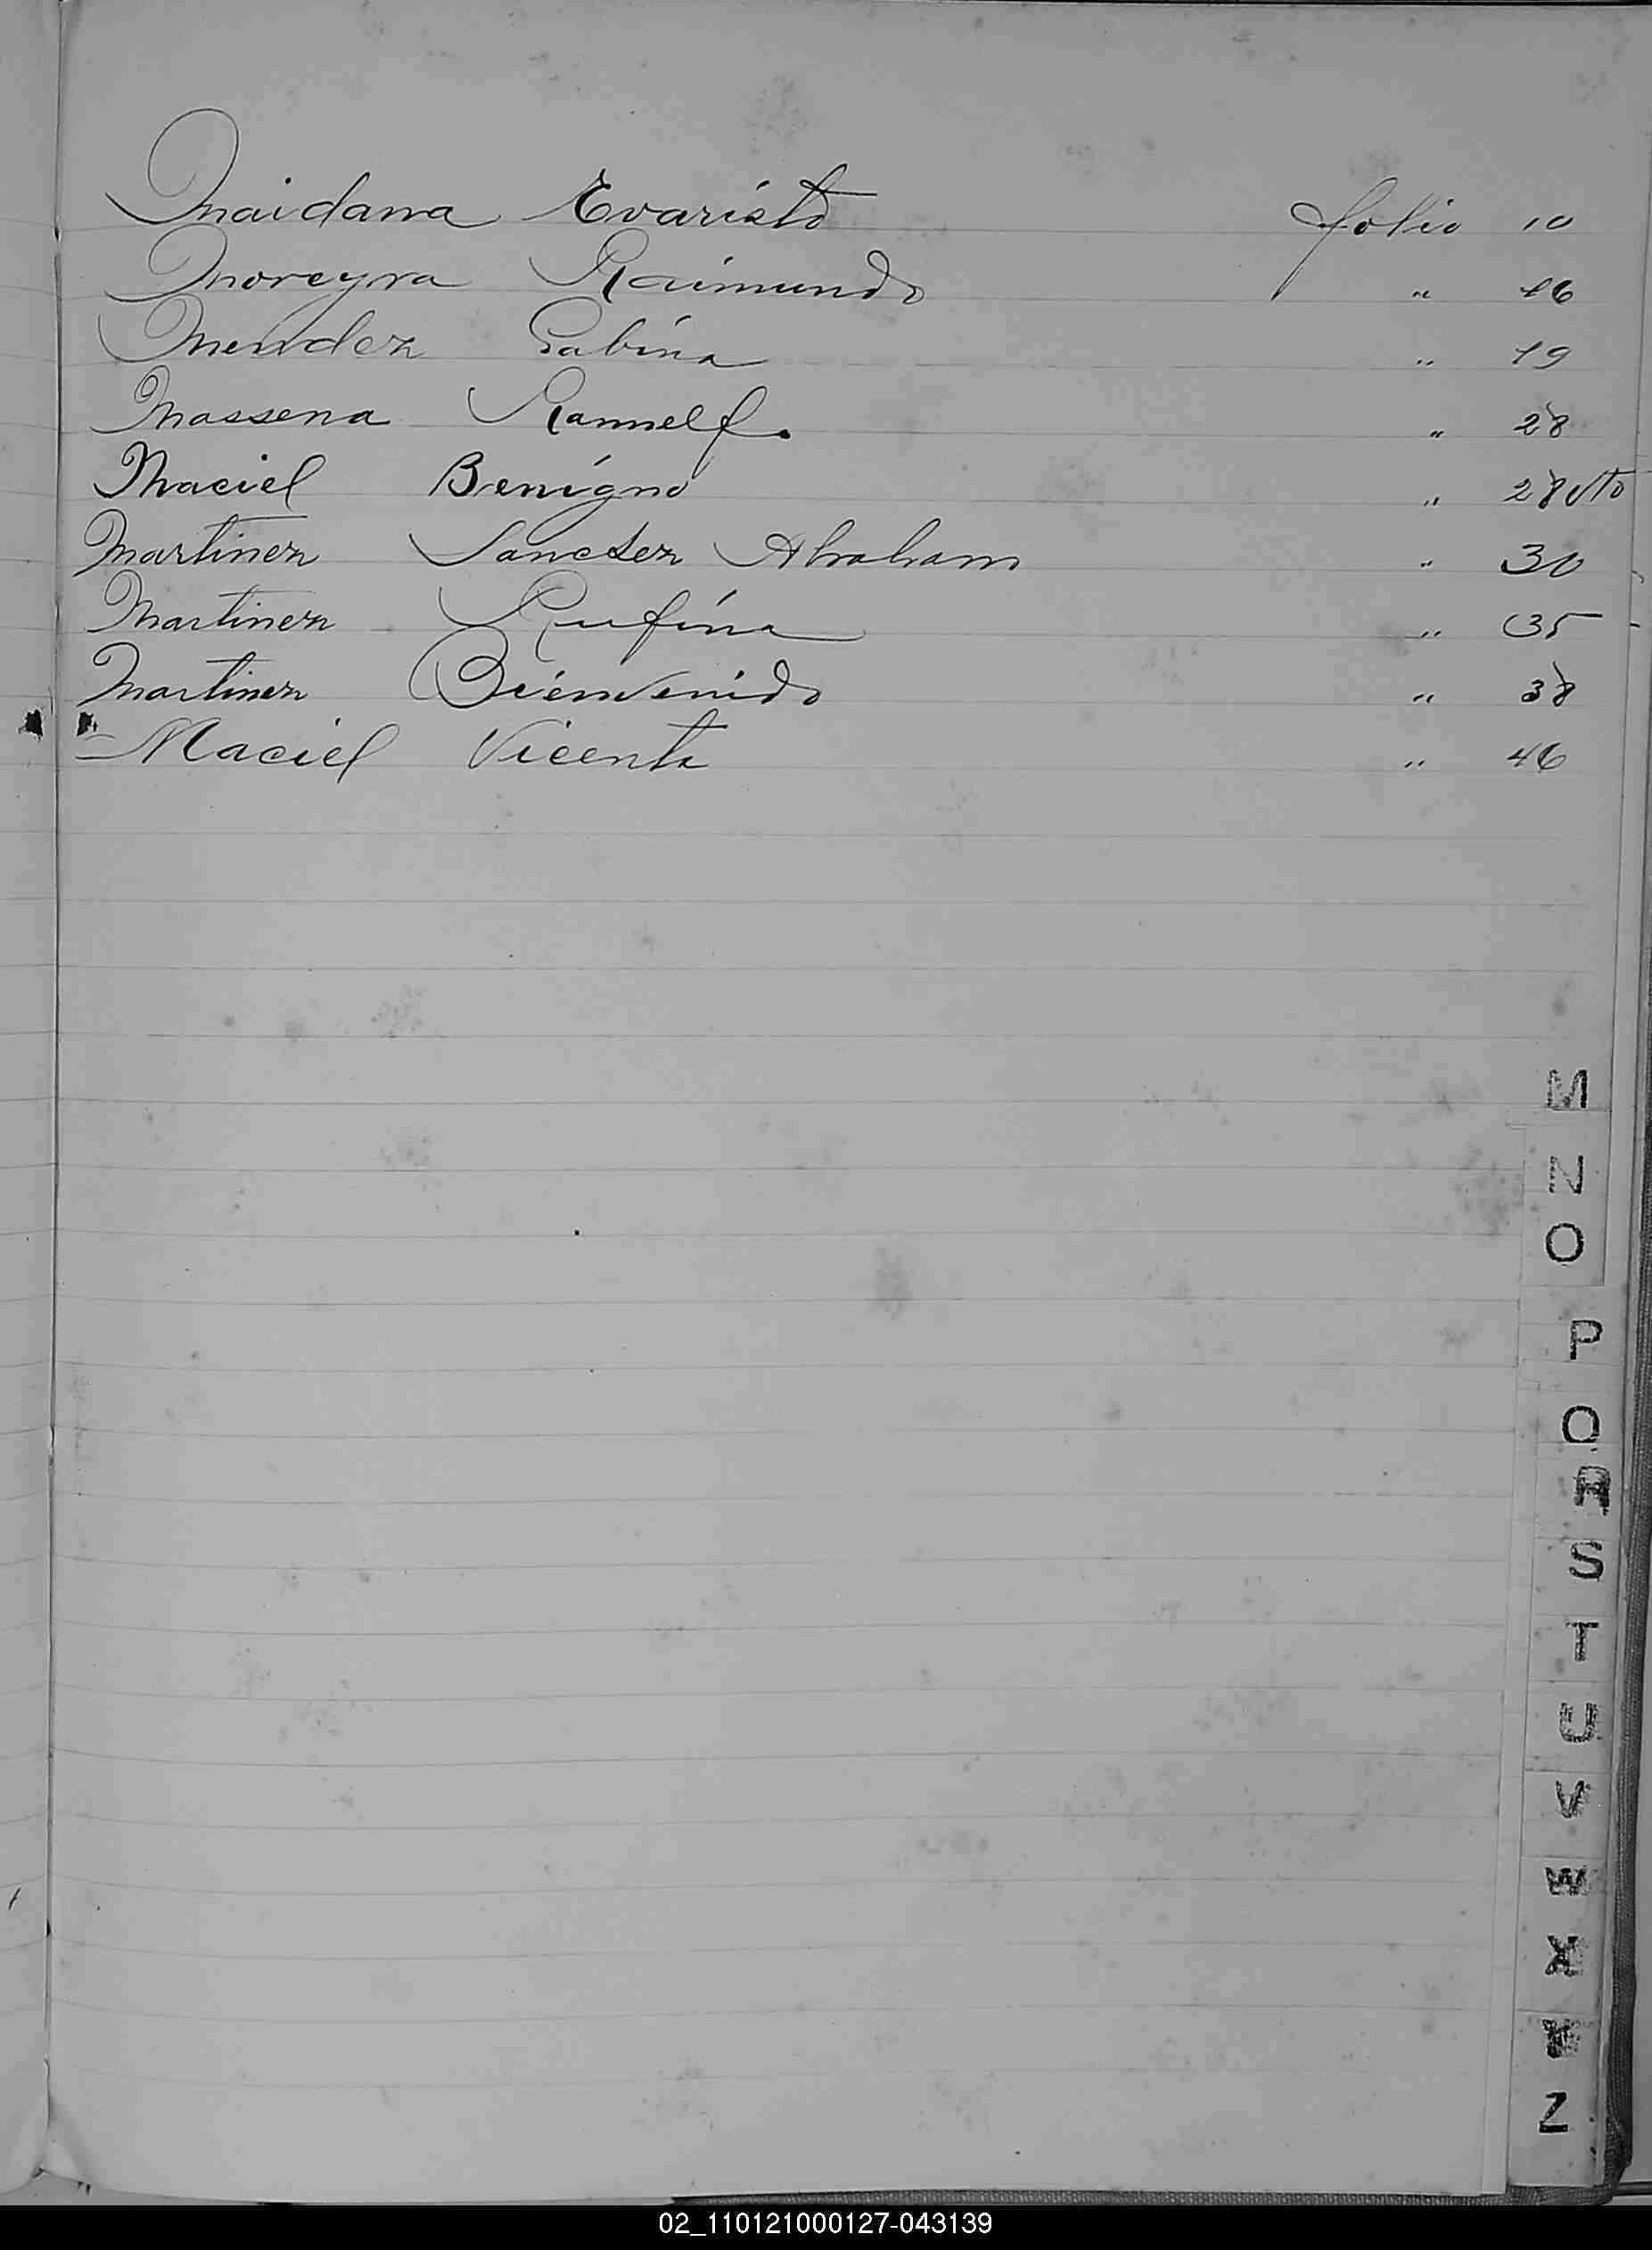 Maidana Evaristo folio 10
Moreyra Raimundo " 16
Mendez Sabina " 19
Massena Ramnelf. " 28
Maciel Benigno " 28 vto
Martinez Sanctez Abraham " 30
Martinez Rufina " 35
Martinez Bienvenido " 38
Maciel Vicenta " 46
M
N
O
P
Q
R
S
T
U
V
W
X
Y
Z
02_110121000127-043139